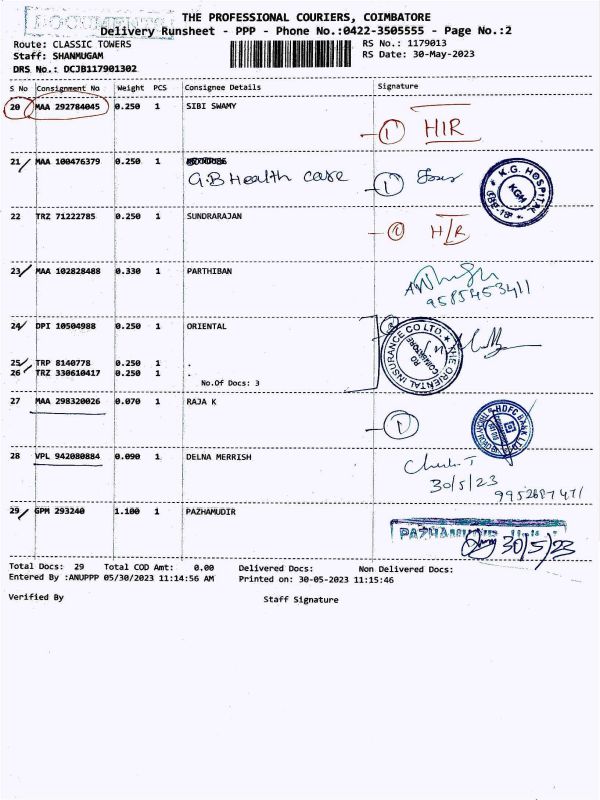 DOCUMENTS
THE PROFESSIONAL COURIERS, COIMBATORE
Delivery Runsheet - PPP - Phone No.:0422-3505555 - Page No.:2
Route: CLASSIC TOWERS RS No.: 1179013
Staff: SHANMUGAM RS Date: 30-May-2023
DRS No.: DCJB117901302
S No Consignment No Weight PCS Consignee Details Signature
20 MAA 292784045 0.250 1 SIBI SWAMY
1 HIR
21 MAA 100476379 0.250 1
G.B Health care 1
K.G. HOSPITAL
KGH
22 TRZ 71222785 0.250 1 SUNDRARAJAN
1 HIR
23 MAA 102828488 0.330 1 PARTHIBAN
9585453411
24 DPI 10504988 0.250 1 ORIENTAL
THE ORIENTAL INSURANCE CO LTD.
RO
COIMBATORE
25 TRP 8140778 0.250 1 .
26 TRZ 330610417 0.250 1 .
No.Of Docs: 3
27 MAA 298320026 0.070 1 RAJA K
1
HDFC BANK LTD
28 VPL 942080884 0.090 1 DELNA MERRISH
30/5/23
9952687471
29 GPM 293240 1.100 1 PAZHAMUDIR
PAZHAMUDIR
30/5/23
Total Docs: 29 Total COD Amt: 0.00 Delivered Docs: Non Delivered Docs:
Entered By :ANUPPP 05/30/2023 11:14:56 AM Printed on: 30-05-2023 11:15:46
Verified By Staff Signature